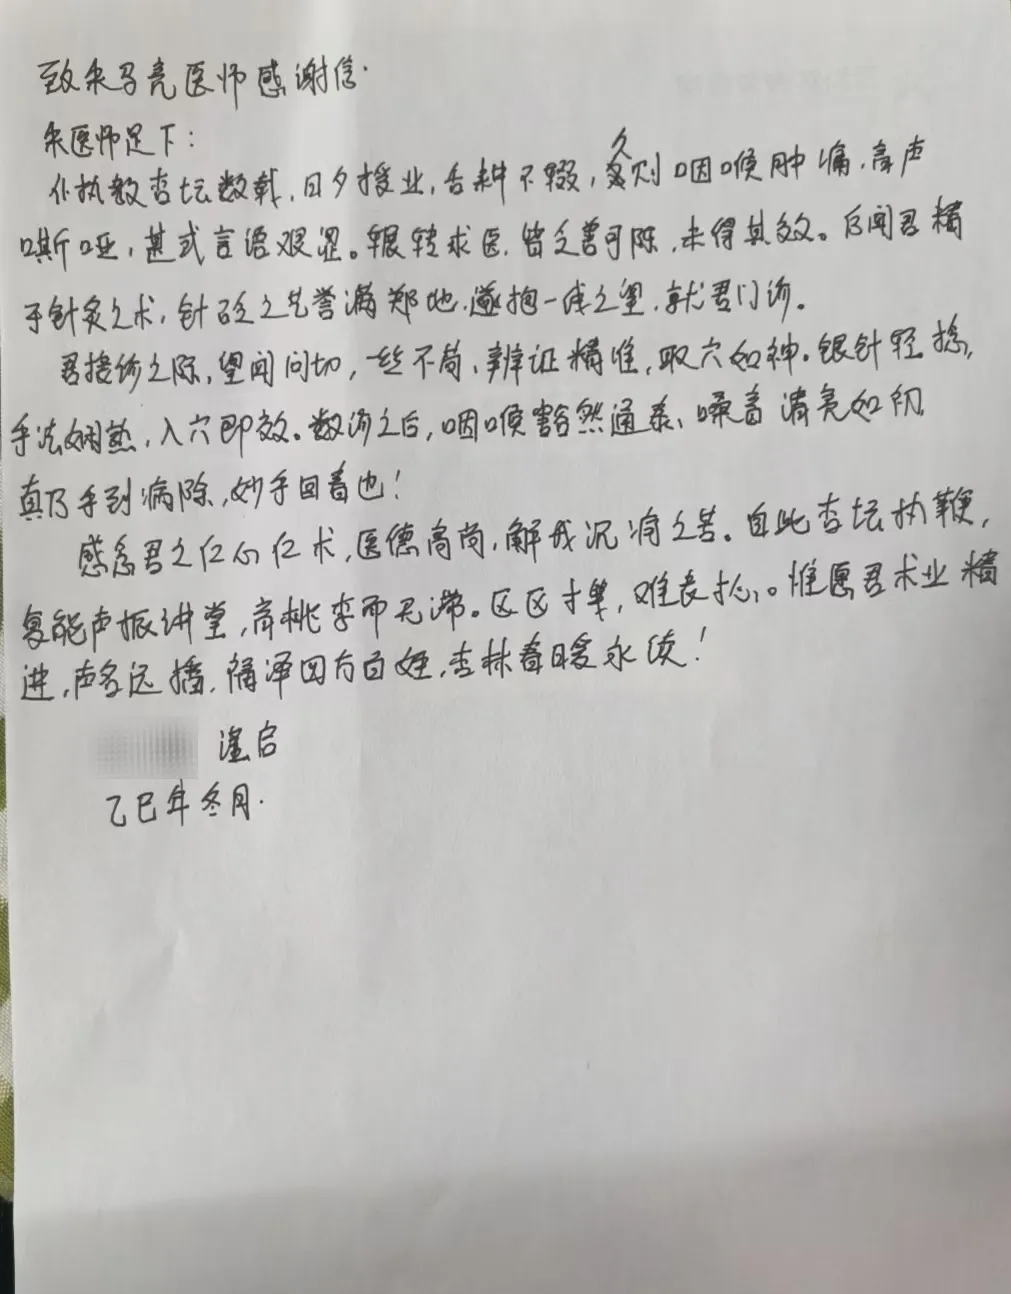 致朱马亮医师感谢信.
朱医师足下:
仆执教杏坛数载,日夕授业,舌耕不辍,久则咽喉肿痛,音声
嘶哑,甚或言语艰涩。辗转求医,皆乏善可陈,未得其效。后闻君精
于针灸之术,针砭之艺誉满郑地,遂抱一线之望,就君门诊。
君接诊之际,望闻问切,一丝不苟,辨证精准,取穴如神.银针轻捻,
手法娴熟,入穴即效。数诊之后,咽喉豁然通泰、嗓音清亮如初,
真乃手到病除,妙手回春也!
感念君之仁心仁术,医德高尚,解我沉疴之苦。自此杏坛执鞭,
复能声振讲堂,育桃李而无滞。区区寸笺,难表寸心。惟愿君术业精
进,声名远播,福泽四方百姓,杏林春暖永续!
谨启
乙巳年冬月.